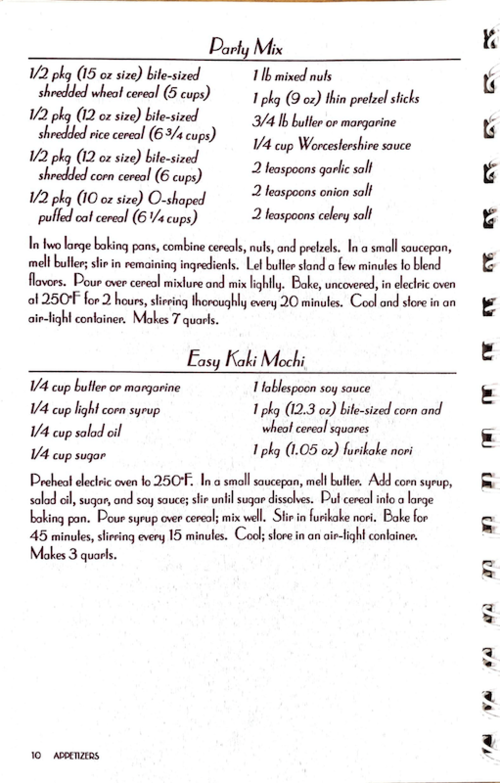 Party Mix
1/2 pkg (15 oz size) bite-sized
shredded wheat cereal (5 cups)
1/2 pkg (12 oz size) bite-sized
shredded rice cereal (6 3/4 cups)
1/2 pkg (12 oz size) bite-sized
shredded corn cereal (6 cups)
1/2 pkg (10 oz size) O-shaped
puffed oat cereal (6 1/4 cups)
1 lb mixed nuts
1 pkg (9 oz) thin pretzel sticks
3/4 lb butter or margarine
1/4 cup Worcestershire sauce
2 teaspoons garlic salt
2 teaspoons onion salt
2 teaspoons celery salt
In two large baking pans, combine cereals, nuts, and pretzels. In a small saucepan,
melt butter; stir in remaining ingredients. Let butter stand a few minutes to blend
flavors. Pour over cereal mixture and mix lightly. Bake, uncovered, in electric oven
at 250°F for 2 hours, stirring thoroughly every 20 minutes. Cool and store in an
air-tight container. Makes 7 quarts.
Easy Kaki Mochi
1/4 cup butter or margarine
1/4 cup light corn syrup
1/4 cup salad oil
1/4 cup sugar
1 tablespoon soy sauce
1 pkg (12.3 oz) bite-sized corn and
wheat cereal squares
1 pkg (1.05 oz) furikake nori
Preheat electric oven to 250°F. In a small saucepan, melt butter. Add corn syrup,
salad oil, sugar, and soy sauce; stir until sugar dissolves. Put cereal into a large
baking pan. Pour syrup over cereal; mix well. Stir in furikake nori. Bake for
45 minutes, stirring every 15 minutes. Cool; store in an air-tight container.
Makes 3 quarts.
10 APPETIZERS